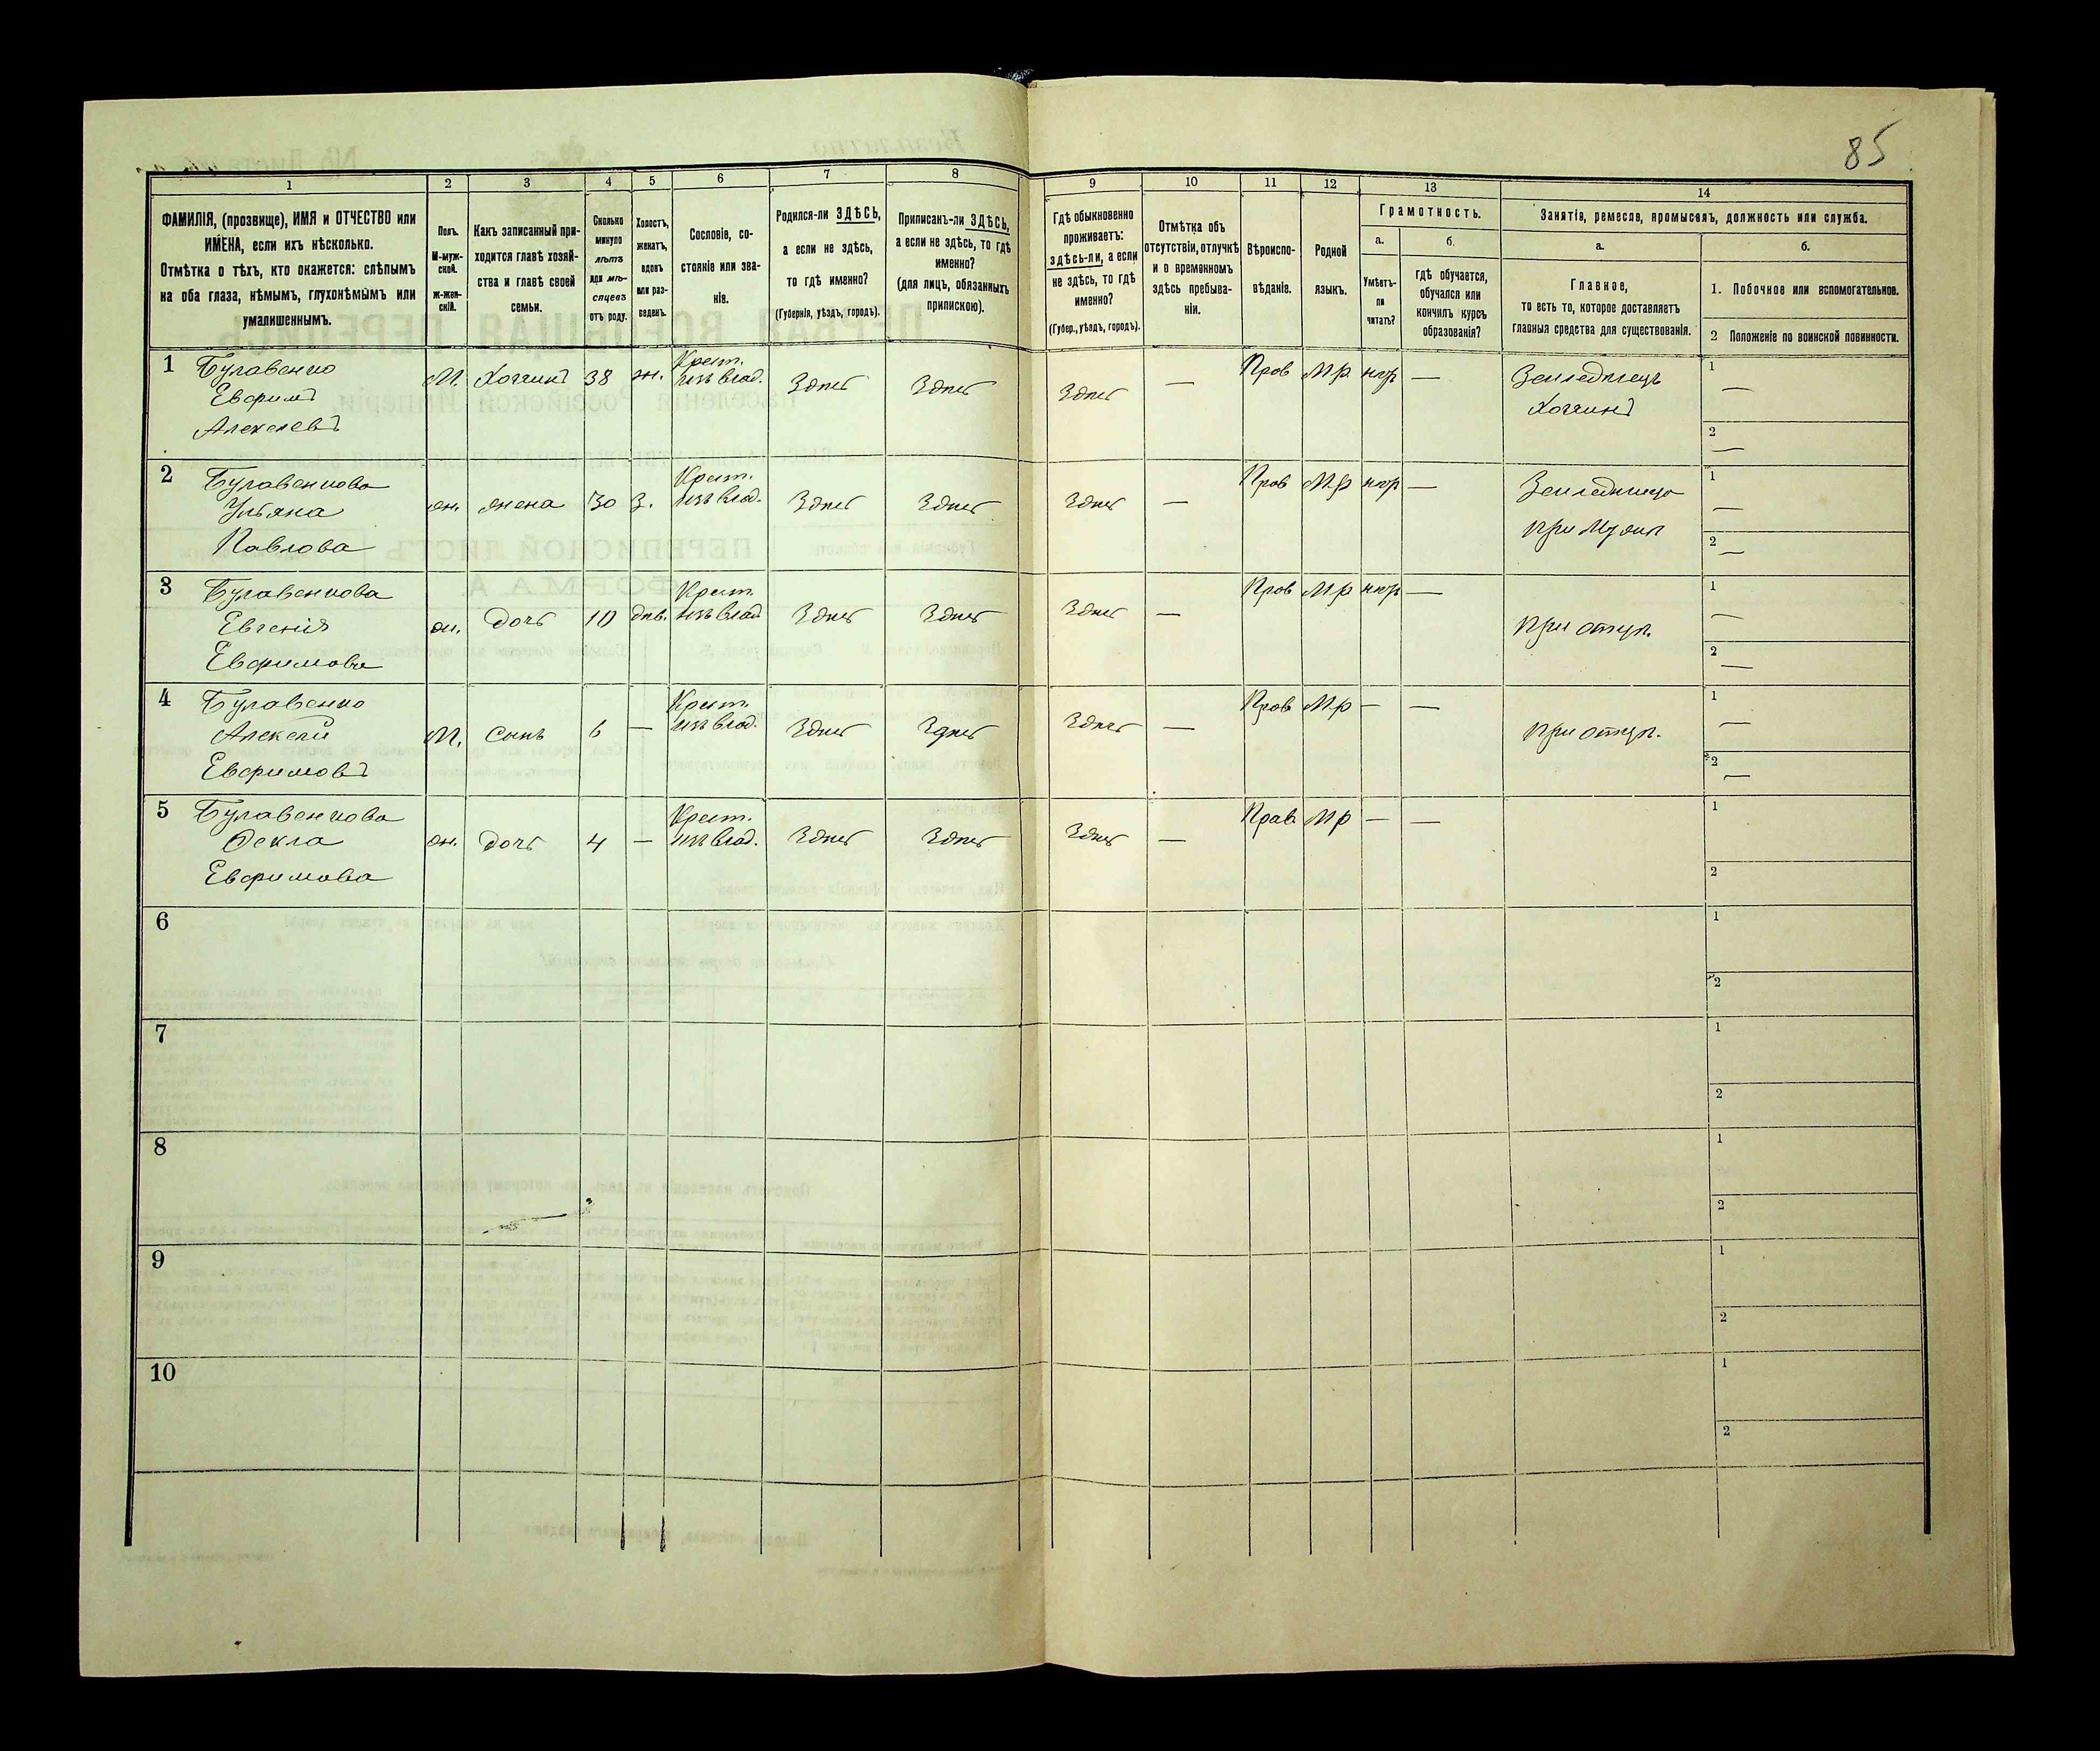 85
1 2 3 4 5 6 7 8 9 10 11 12 13 14
ФАМИЛІЯ, (прозвище), ИМЯ и ОТЧЕСТВО или
ИМЕНА, если ихъ нѣсколько.
Отмѣтка о тѣхъ, кто окажется: слѣпымъ
на оба глаза, нѣмымъ, глухонѣмымъ или
умалишеннымъ.
Полъ.
М-муж-
ской.
Ж-жен-
скій.
Какъ записанный при-
ходится главѣ хозяй-
ства и главѣ своей
семьи.
Сколько
минуло
лѣтъ
или мѣ-
сяцевъ
отъ роду.
Холостъ,
женатъ,
вдовъ
или раз-
веденъ.
Сословіе, со-
стояніе или зва-
ніе.
Родился-ли ЗДѢСЬ,
а если не здѣсь,
то гдѣ именно?
(Губернія, уѣздъ, городъ).
Приписанъ-ли ЗДѢСЬ,
а если не здѣсь, то гдѣ
именно?
(для лицъ, обязанныхъ
припискою).
Гдѣ обыкновенно
проживаетъ:
здѣсь-ли, а если
не здѣсь, то гдѣ
именно?
(Губер., уѣздъ, городъ).
Отмѣтка объ
отсутствіи, отлучкѣ
и о временномъ
здѣсь пребыва-
ніи.
Вѣроиспо-
вѣданіе.
Родной
языкъ.
Грамотность.
а.
Умѣетъ-
ли
читать?
б.
гдѣ обучается,
обучался или
кончилъ курсъ
образованія?
Занятія, ремесло, промыселъ, должность или служба.
а.
Главное,
то есть то, которое доставляетъ
главныя средства для существованія.
б.
1. Побочное или вспомогательное.
2 Положеніе по воинской повинности.
1 Булавенко
Евфимъ
Алексѣевъ
М. Хозяинъ 38 ж. Крест.
изъ влад. Здѣсь Здѣсь Здѣсь — Пров Мр нѣтъ — Земледѣлецъ
Хозяинъ
1 —
2 —
2 Булавенкова
Ульяна
Павлова
ж. жена 30 З. Крест.
изъ влад. Здѣсь Здѣсь Здѣсь — Пров Мр нѣтъ — Земледѣлецъ
при мужѣ
1 —
2 —
3 Булавенкова
Евгенія
Евфимова
ж. дочь 10 дѣв. Крест.
изъ влад Здѣсь Здѣсь Здѣсь — Пров Мр нѣтъ —
при отцѣ.
1 —
2 —
4 Булавенко
Алексѣй
Евфимовъ
М. сынъ 6 — Крест.
изъ влад. Здѣсь Здѣсь Здѣсь — Пров Мр — —
при отцѣ.
1 —
2 —
5 Булавенкова
Фекла
Евфимова
ж. дочь 4 — Крест.
изъ влад. Здѣсь Здѣсь Здѣсь — Прав Мр — —
1
2
6
1
2
7
1
2
8
1
2
9
1
2
10
1
2